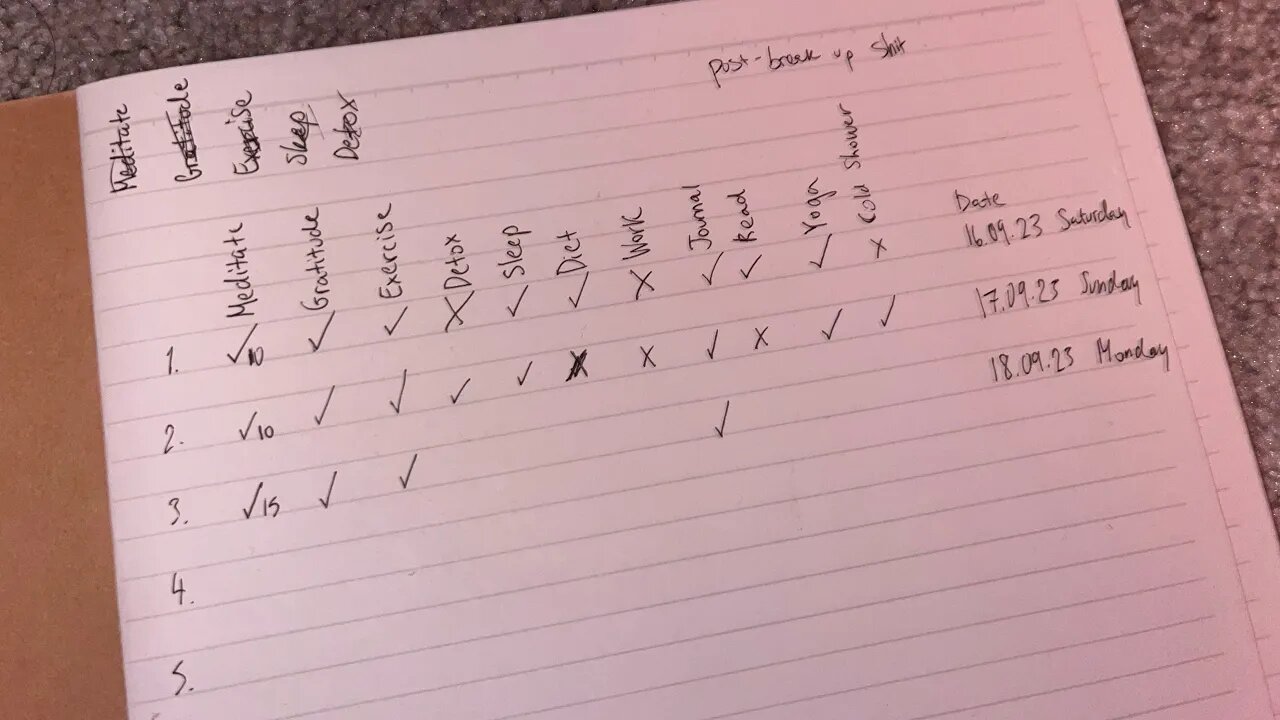 post-break up shit
Meditate Gratitude Exercise Sleep Detox
Meditate Gratitude Exercise Detox Sleep Diet Work Journal Read Yoga Cold Shower Date
1. ✓10 ✓ ✓ X ✓ ✓ X ✓ ✓ ✓ X 16.09.23 Saturday
2. ✓10 ✓ ✓ ✓ ✓ X X ✓ X ✓ ✓ 17.09.23 Sunday
3. ✓15 ✓ ✓ ✓ 18.09.23 Monday
4.
5.